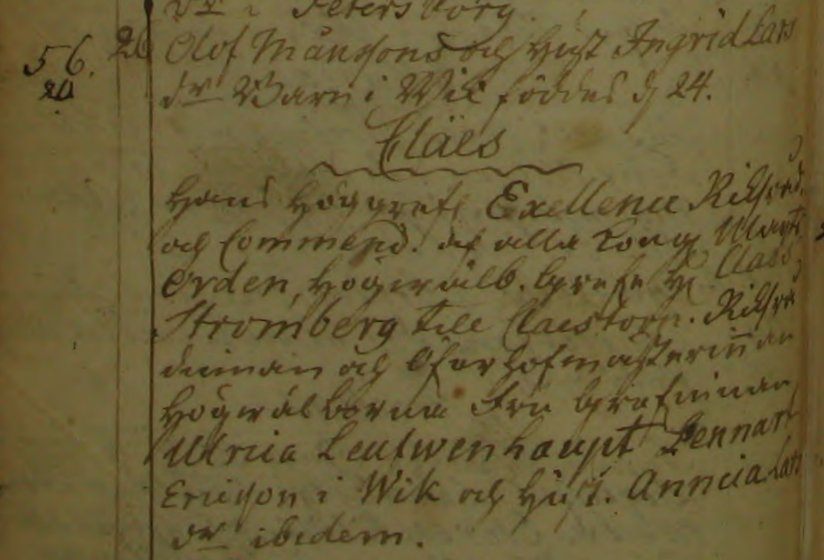 dr i Petersborg.
56. 26 Olof Månssons och Hust Ingrid Lars
20 dr Barn i Wik föddes d 24.
Claës
Hans Höggrefl Exellence Riksråd.
och Commend. af alla Kong Maijts
Orden, Högwälb. Grefe H. Claës
Stromberg till Claestorp. Riksrå
dinnan och Öfwerhofmästerinnan
Högwälborna Fru Grefwinnan
Ulrica Leufwenhaupt Lennart
Ericson i Wik och Hust. Annicia Lars
dr ibidem.